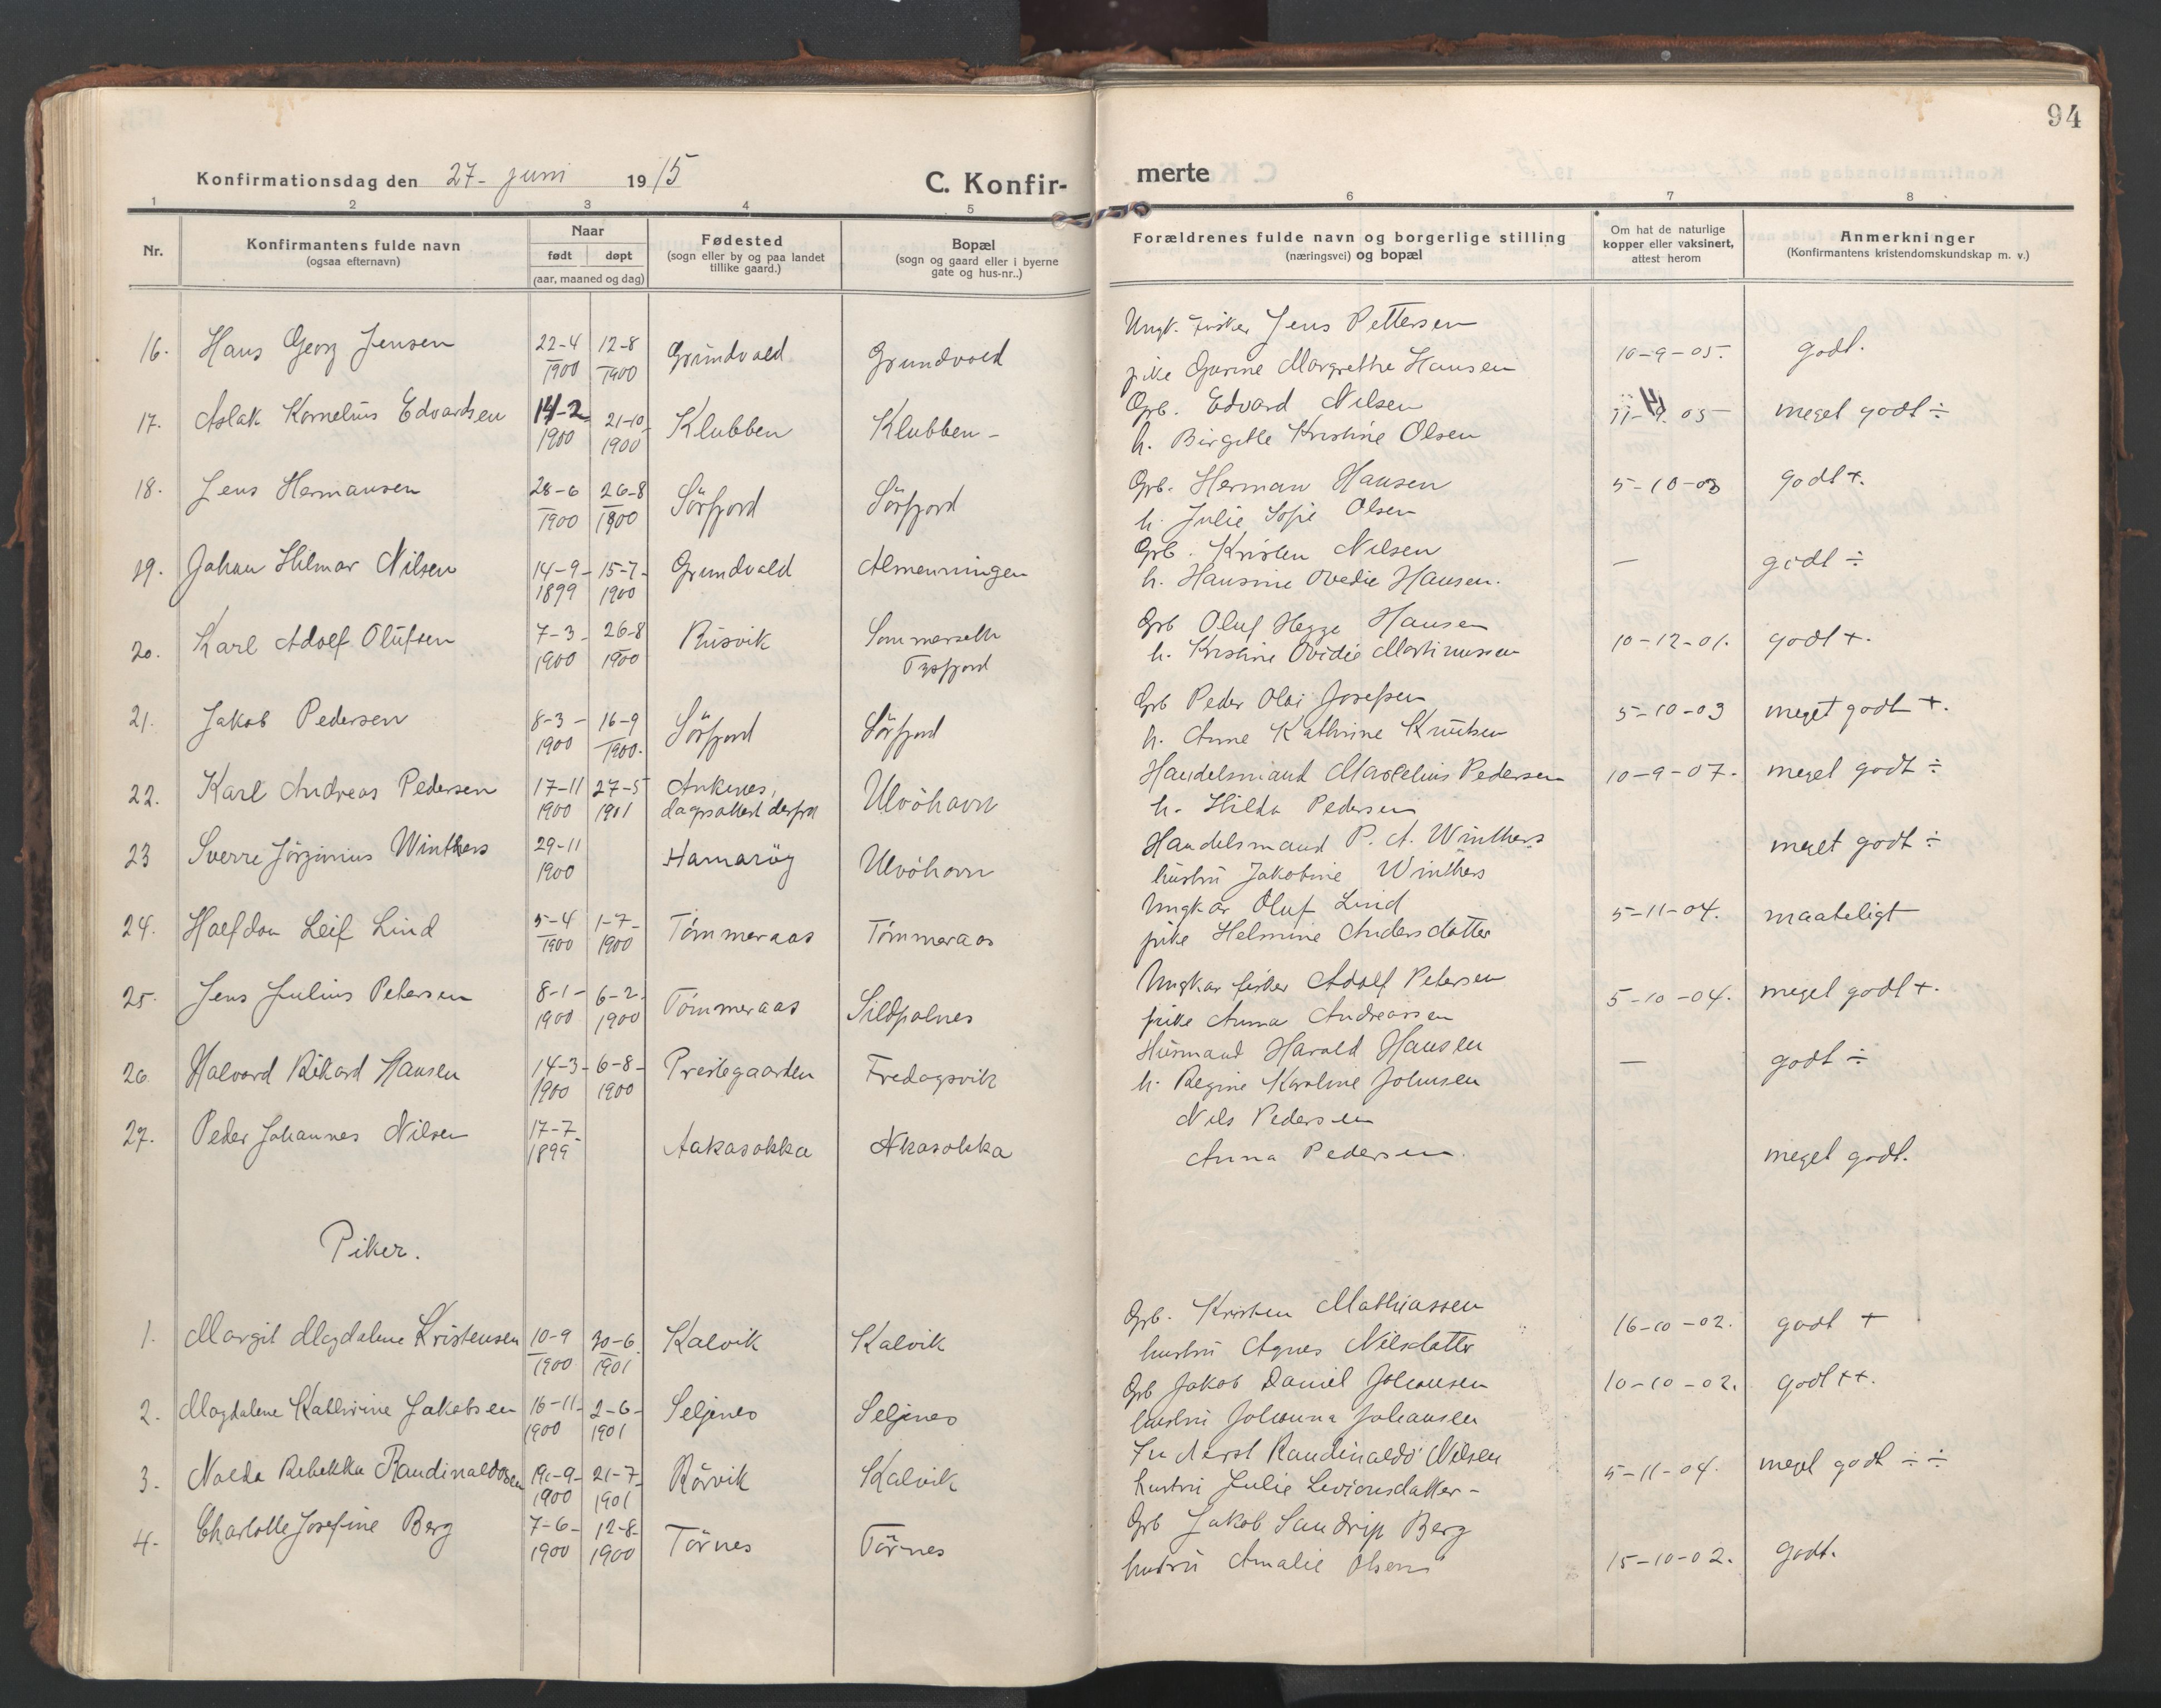 94
Konfirmationsdag den 27- juni 1915
C. Konfir-
merte
1 2 3 4 5 6 7 8
Nr.
Konfirmantens fulde navn
(ogsaa efternavn)
Naar
født døpt
(aar, maaned og dag)
Fødested
(sogn eller by og paa landet
tillike gaard.)
Bopæl
(sogn og gaard eller i byerne
gate og hus-nr..)
Forældrenes fulde navn og borgerlige stilling
(næringsvei) og bopæl
Om hat de naturlige
kopper eller vaksinert,
attest herom
Anmerkninger
(Konfirmantens kristendomskundskap m. v.)
16. Hans Georg Jensen 22-4 1900 12-8 1900 Grundvald Grundvold
Ungk. Fisker Jens Pettersen
pike Gurine Margrethe Hansen 10-9-05. godt.
17. Aslak Kornelius Edvardsen 14-2 1900 21-10- 1900 Klubben Klubben-
Grb. Edvard Nilsen
h. Birgitte Kristine Olsen 05- meget godt ÷
18. Jens Hermansen 28-6 1900 26-8 1900 Sörfjord Sörfjord
Grb. Herman Hansen
h. Julie Sofie Olsen 5-10-03 godt +.
19. Johan Hilmar Nilsen 14-9- 1899 15-7- 1900 Grundvald Almenningen
Grb. Kristen Nilsen
h. Hansine Ovedie Hansen. — godt ÷
20. Karl Adolf Olufsen 7-3- 1900 26-8 1900 Rusvik Sommerseth
Tysfjord
Grb Oluf Hegge Hansen
h. Kristine Ovidie Martinussen 10-12-01. godt +.
21. Jakob Pedersen 8-3- 1900 16-9 1900. Sörfjord Sörfjord
Grb Peder Olai Josefsen
h. Anne Kathrine Knutsen 5-10-03 meget godt +.
22. Karl Andreas Pedersen 17-11 1900 27-5 1901 Ankenes,
dapsattest derfra Ulvöhavn
Handelsmand Marselius Pedersen
h. Hilda Pedersen 10-9-07. meget godt ÷
23 Sverre Jörginius Winthers 29-11 1900 Hamaröy Ulvöhavn
Handelsmand P. A. Winthers
hustru Jakobine Winthers meget godt ÷
24. Halfdan Leif Lind 5-4 1900 1-7- 1900 Tömmeraas Tömmeraas
Ungkar Oluf Lind
pike Helmine Andersdatter 5-11-04. maateligt
25. Jens Julius Petersen 8-1- 1900 6-2- 1900 Tömmeraas Sildpolnes
Ungkar fisker Adolf Petersen
pike Anna Andreassen 5-10-04. meget godt +.
26. Halvard Rikard Hansen 14-3- 1900 6-8- 1900 Prestegaarden Fredagsvik
Husmand Harald Hansen
h. Regine Karoline Johnsen — godt ÷
27. Peder Johannes Nilsen 17-7- 1899 Aakasokka Akasokka
Nils Pedersen
Anna Pedersen. meget godt.
Piker.
1. Margit Magdalene Kristensen 10-9 1900 30-6. 1901 Kalvik Kalvik
Grb. Kristen Mathiassen
hustru Agnes Nilsdatter 16-10-02. godt +
2. Magdalene Kathrine Jakobsen 16-11- 1900 2-6- 1901 Seljenes Seljenes
Grb Jakob Daniel Johansen
hustru Johanna Johansen 10-10-02. godt ++.
3. Nalda Rebekka Randinaldsen 1900 21-7- 1901 Rörvik Kalvik
Inderst Randinaldi Nilsen
hustru Julie Levionsdatter- 5-11-04. meget godt ÷ ÷
4. Charlotte Josefine Berg 7-6- 1900 12-8- 1900 Törnes Törnes
Grb Jakob Sandrip Berg
hustru Amalie Olsen 15-10-02. godt.